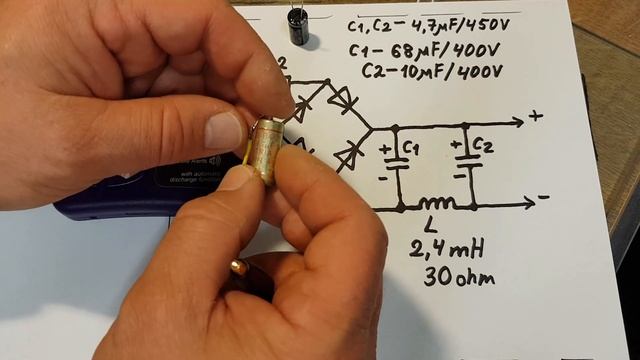 C1, C2 – 4,7μF/450V
C1 – 68μF/400V
C2 – 10μF/400V
2
+
+ C1
+ C2
-
-
-
L
2,4mH
30 ohm
with automatic
discharge function